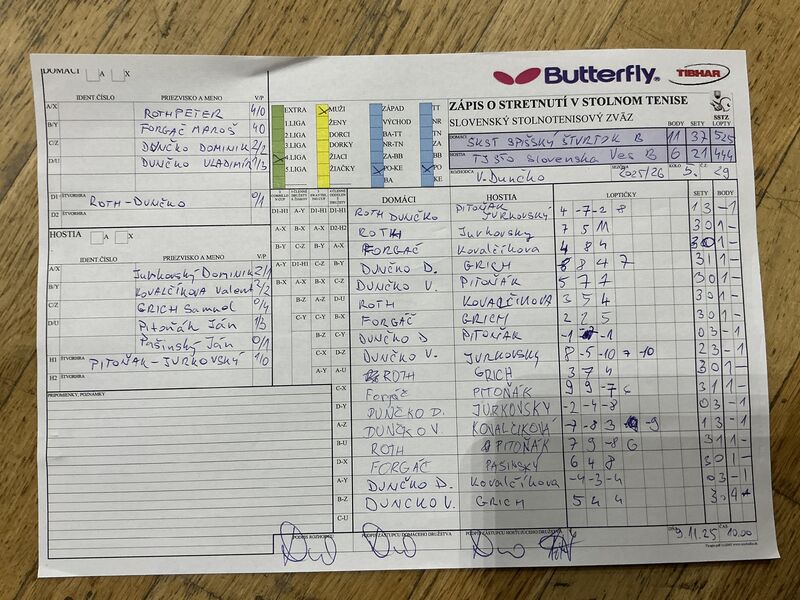 DOMÁCI A X
IDENT. ČÍSLO PRIEZVISKO A MENO V/P
A/X ROTH PETER 4/0
B/Y FORGÁČ MAROŠ 4/0
C/Z DUNČKO DOMINIK 2/2
D/U DUNČKO VLADIMÍR 1/3
D1 ŠTVORHRA ROTH-DUNČKO 0/1
D2 ŠTVORHRA
HOSTIA A X
IDENT. ČÍSLO PRIEZVISKO A MENO V/P
A/X Jurkovský Dominik 2/1
B/Y KOVALČÍKOVÁ Valent 2/2
C/Z GRICH Samuel 0/4
D/U Pitoňák Ján 1/3
Pašinský Ján 0/1
H1 ŠTVORHRA PITOŇÁK-JURKOVSKÝ 1/0
H2 ŠTVORHRA
PRIPOMIENKY, POZNÁMKY
Butterfly TIBHAR
EXTRA MUŽI ZÁPAD TT
1.LIGA ŽENY VÝCHOD NR
2.LIGA DORCI BA-TT TN
3.LIGA DORKY TN-NR ZA
4.LIGA ŽIACI ZA-BB BB
5.LIGA ŽIAČKY PO-KE PO
BA KE
ZÁPIS O STRETNUTÍ V STOLNOM TENISE
SLOVENSKÝ STOLNOTENISOVÝ ZVÄZ
SSTZ
BODY SETY LOPTY
DOMÁCI SKST SPIŠSKÝ ŠTVRTOK B 11 37 525
HOSTIA TJ 350 Slovenska Ves B 6 21 444
ROZHODCA V. Dunčko SEZÓNA 2025/26 KOLO 5. Č.Z. 29
DOMÁCI HOSTIA LOPTIČKY SETY BODY
D1-H1 ROTH DUNČKO PITOŇÁK JURKOVSKÝ 4 -7 -2 -8 1 3 - 1
A-X ROTH Jurkovsky 7 5 11 3 0 1 -
B-Y FORGÁČ Kovalčíkova 4 8 4 3 0 1 -
DUNČKO D. GRICH 8 4 7 3 1 1 -
DUNČKO V. PITOŇÁK 5 7 7 3 0 1 -
ROTH KOVALČÍKOVA 3 5 4 3 0 1 -
FORGÁČ GRICH 2 2 5 3 0 1 -
DUNČKO D PITOŇÁK 0 3 - 1
DUNČKO V. JURKOVSKY 8 -5 -10 7 -10 2 3 - 1
ROTH GRICH 3 7 4 3 0 1 -
C-X Forgáč PITOŇÁK 9 9 -7 6 3 1 1 -
D-Y DUNČKO D. JURKOVSKÝ -2 -4 -8 0 3 - 1
A-Z DUNČKO V. KOVALČIKOVÁ -7 -8 3 -9 1 3 - 1
B-U ROTH PITOŇÁK 7 9 -8 6 3 1 1 -
D-X FORGÁČ PASINSKÝ 6 4 8 3 0 1 -
A-Y DUNČKO D. Kovalčíkova -4 -3 -4 0 3 - 1
B-Z DUNČKO V. GRICH 5 4 4
C-U
PODPIS ROZHODCU PODPIS ZÁSTUPCU DOMÁCEHO DRUŽSTVA PODPIS ZÁSTUPCU HOSŤUJÚCEHO DRUŽSTVA DŇA 9.11.25 ČAS 10.00